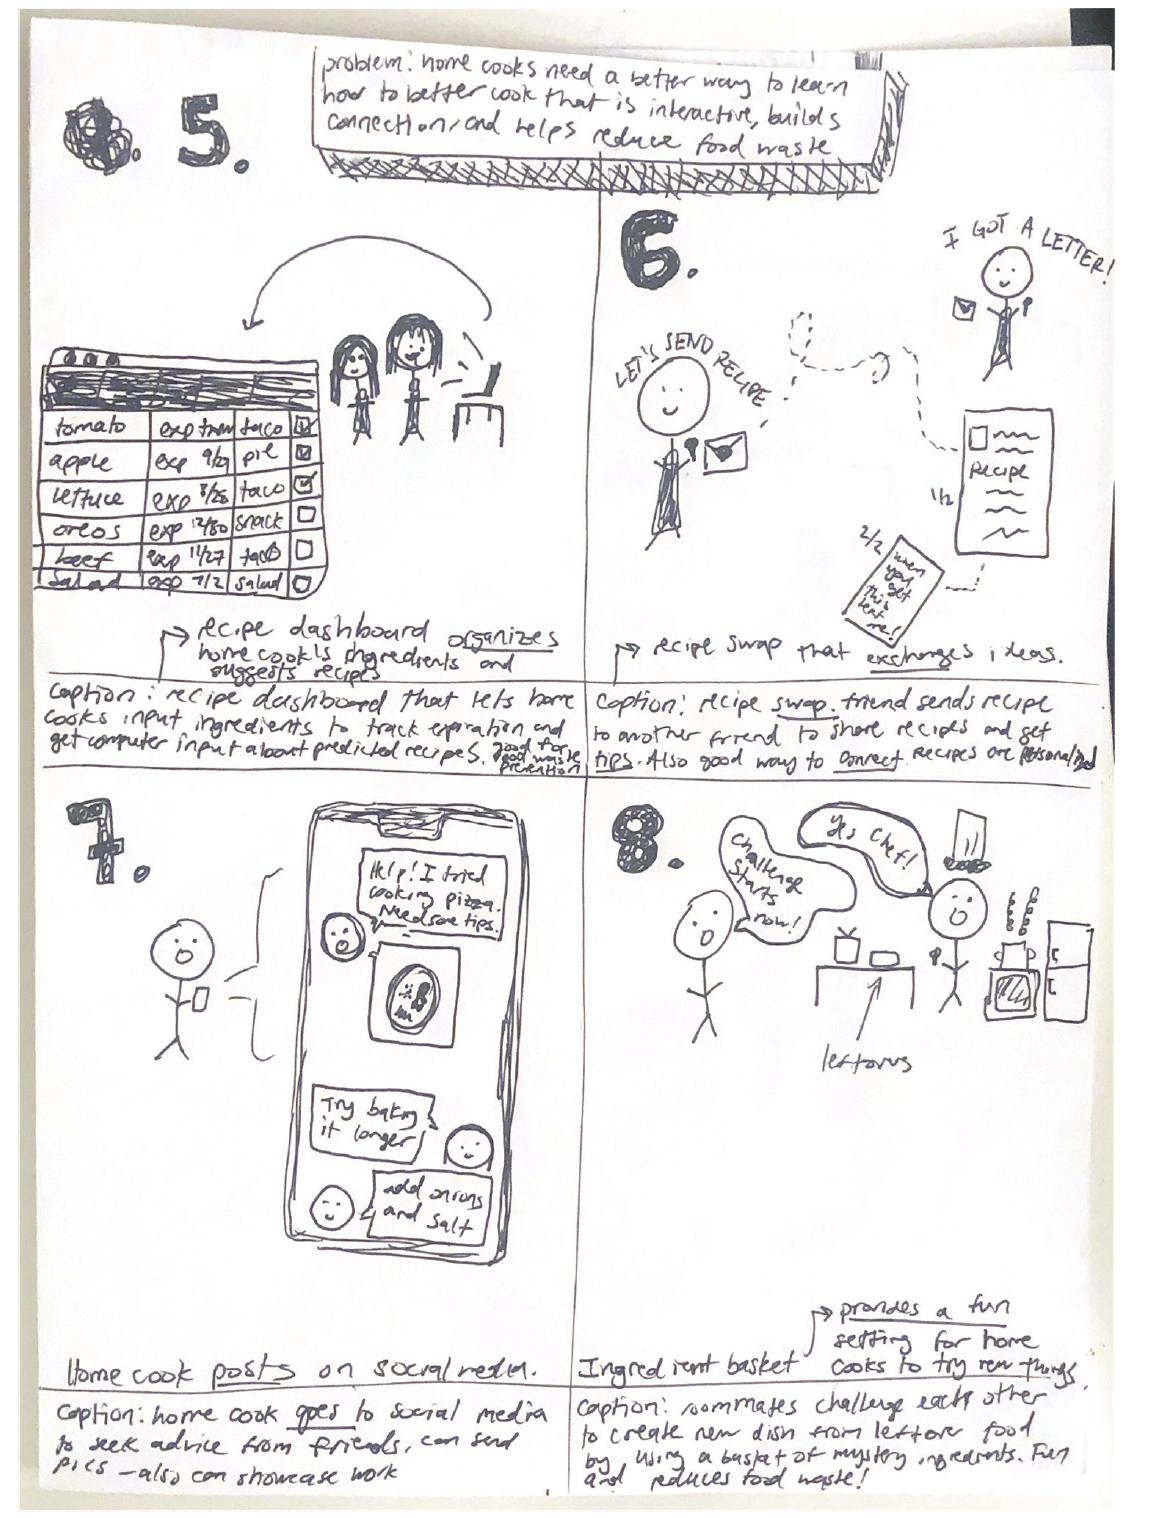 problem: home cooks need a better way to learn
how to better cook that is interactive, builds
connection, and helps reduce food waste
5.
tomato exp tmrw taco
apple exp 9/29 pie
lettuce exp 8/28 taco
oreos exp 12/30 snack
beef exp 11/27 taco
salad exp 7/2 salad
recipe dashboard organizes
home cook's ingredients and
suggests recipes
caption: recipe dashboard that lets home
cooks input ingredients to track expiration and
get computer input about predicted recipes. good for
food waste
prevention
6.
I GOT A LETTER!
LET'S SEND RECIPE
RECIPE
1/2
2/2
when
you
get
this
text
me!
recipe swap that exchanges ideas.
caption: recipe swap. friend sends recipe
to another friend to share recipes and get
tips. Also good way to connect. Recipes are personalized
7.
Help! I tried
cooking pizza.
Need some tips.
Try baking
it longer
add onions
and salt
Home cook posts on social media.
caption: home cook goes to social media
to seek advice from friends, can send
pics – also can showcase work
8.
Challenge
starts
now!
Yes Chef!
leftovers
provides a fun
setting for home
Ingredient basket cooks to try new things.
caption: roommates challenge each other
to create new dish from leftover food
by using a basket of mystery ingredients. Fun
and reduces food waste!